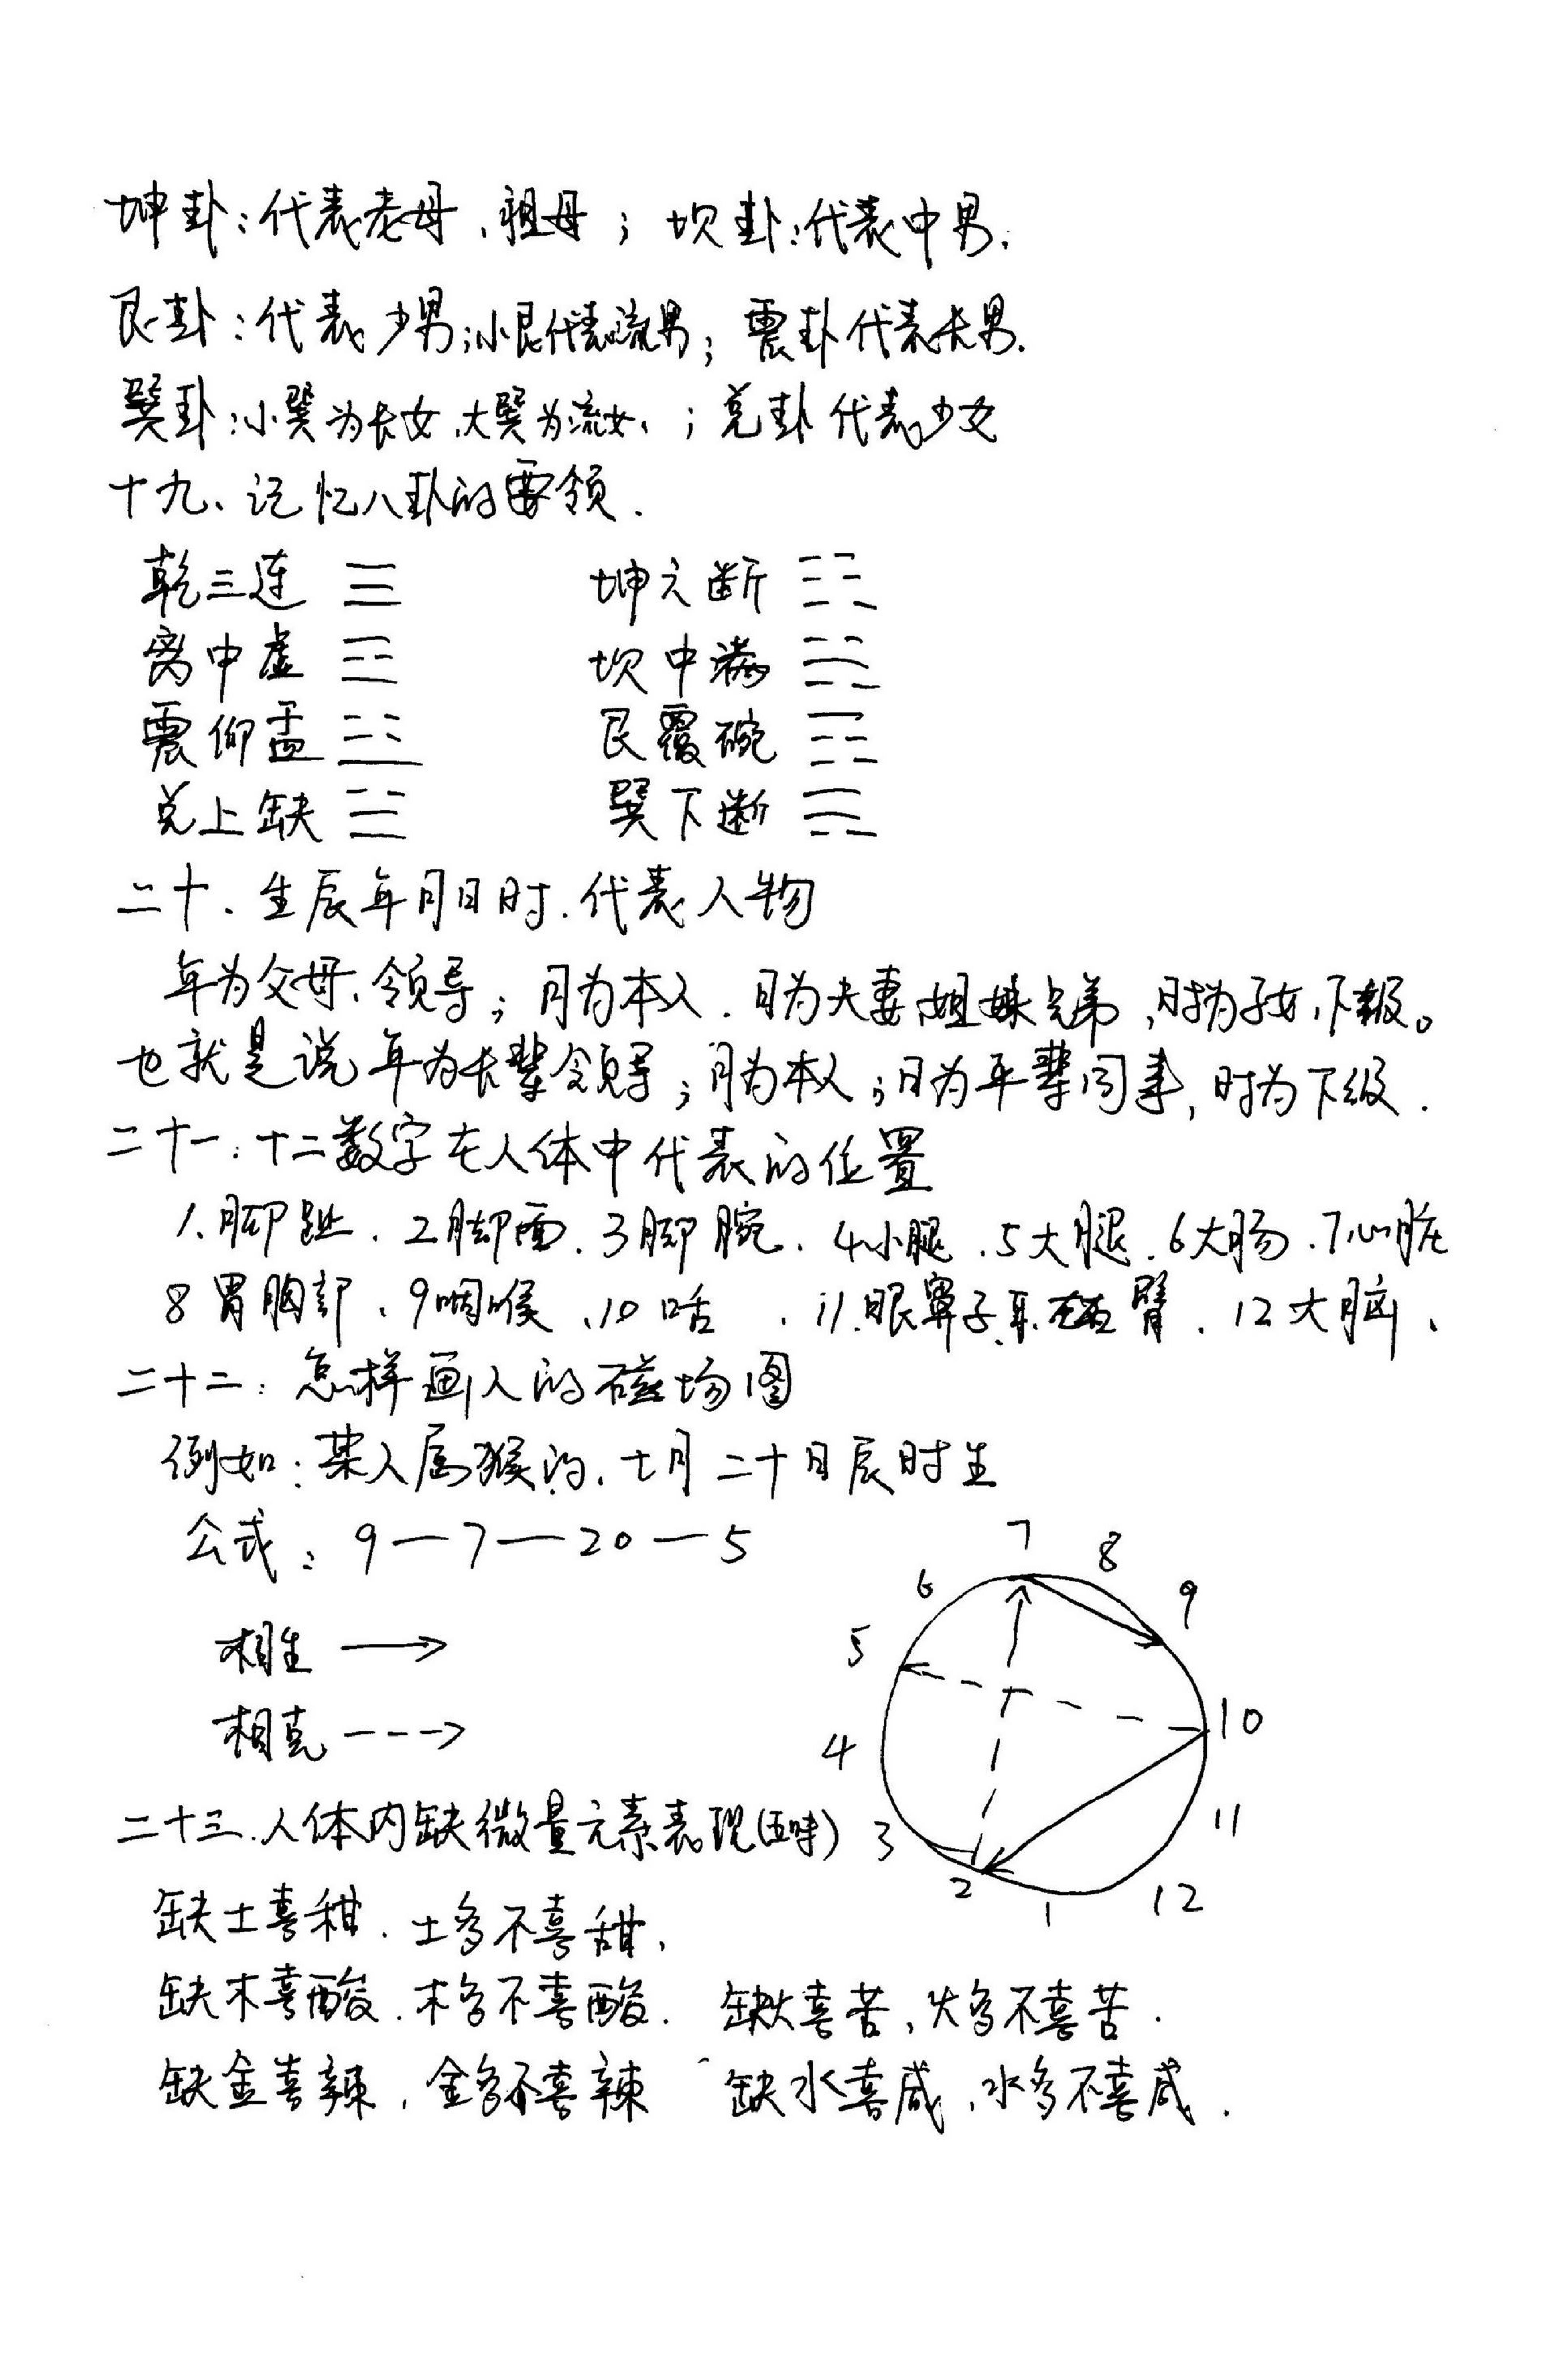 坤卦：代表老母、祖母；坎卦：代表中男.
艮卦：代表少男；小艮代表流男；震卦代表长男.
巽卦：小巽为长女，大巽为流女、；兑卦代表少女
十九、记忆八卦的要领.
乾三连 ☰ 坤六断 ☷
离中虚 ☲ 坎中满 ☵
震仰盂 ☳ 艮覆碗 ☶
兑上缺 ☱ 巽下断 ☴
二十、生辰年月日时.代表人物
年为父母、领导；月为本人.日为夫妻、姐妹兄弟，时为子女，下级。
也就是说年为长辈领导；月为本人；日为平辈同事，时为下级.
二十一：十二数字在人体中代表的位置
1.脚趾.2脚面.3脚腕.4小腿.5大腿.6大肠.7心脏
8胃胸部、9咽喉、10 .11.眼鼻子.耳.左右臂.12大脑、
二十二：怎样画人的磁场图
例如：某人属猴的，七月二十日辰时生
公式：9—7—20—5
7
8
6
9
5
相生 →
10
相克 --->
4
11
二十三.人体内缺微量元素表现(五味)
3
2
12
1
缺土喜甜.土多不喜甜，
缺木喜酸.木多不喜酸. 缺火喜苦，火多不喜苦.
缺金喜辣，金多不喜辣 缺水喜咸，水多不喜咸.